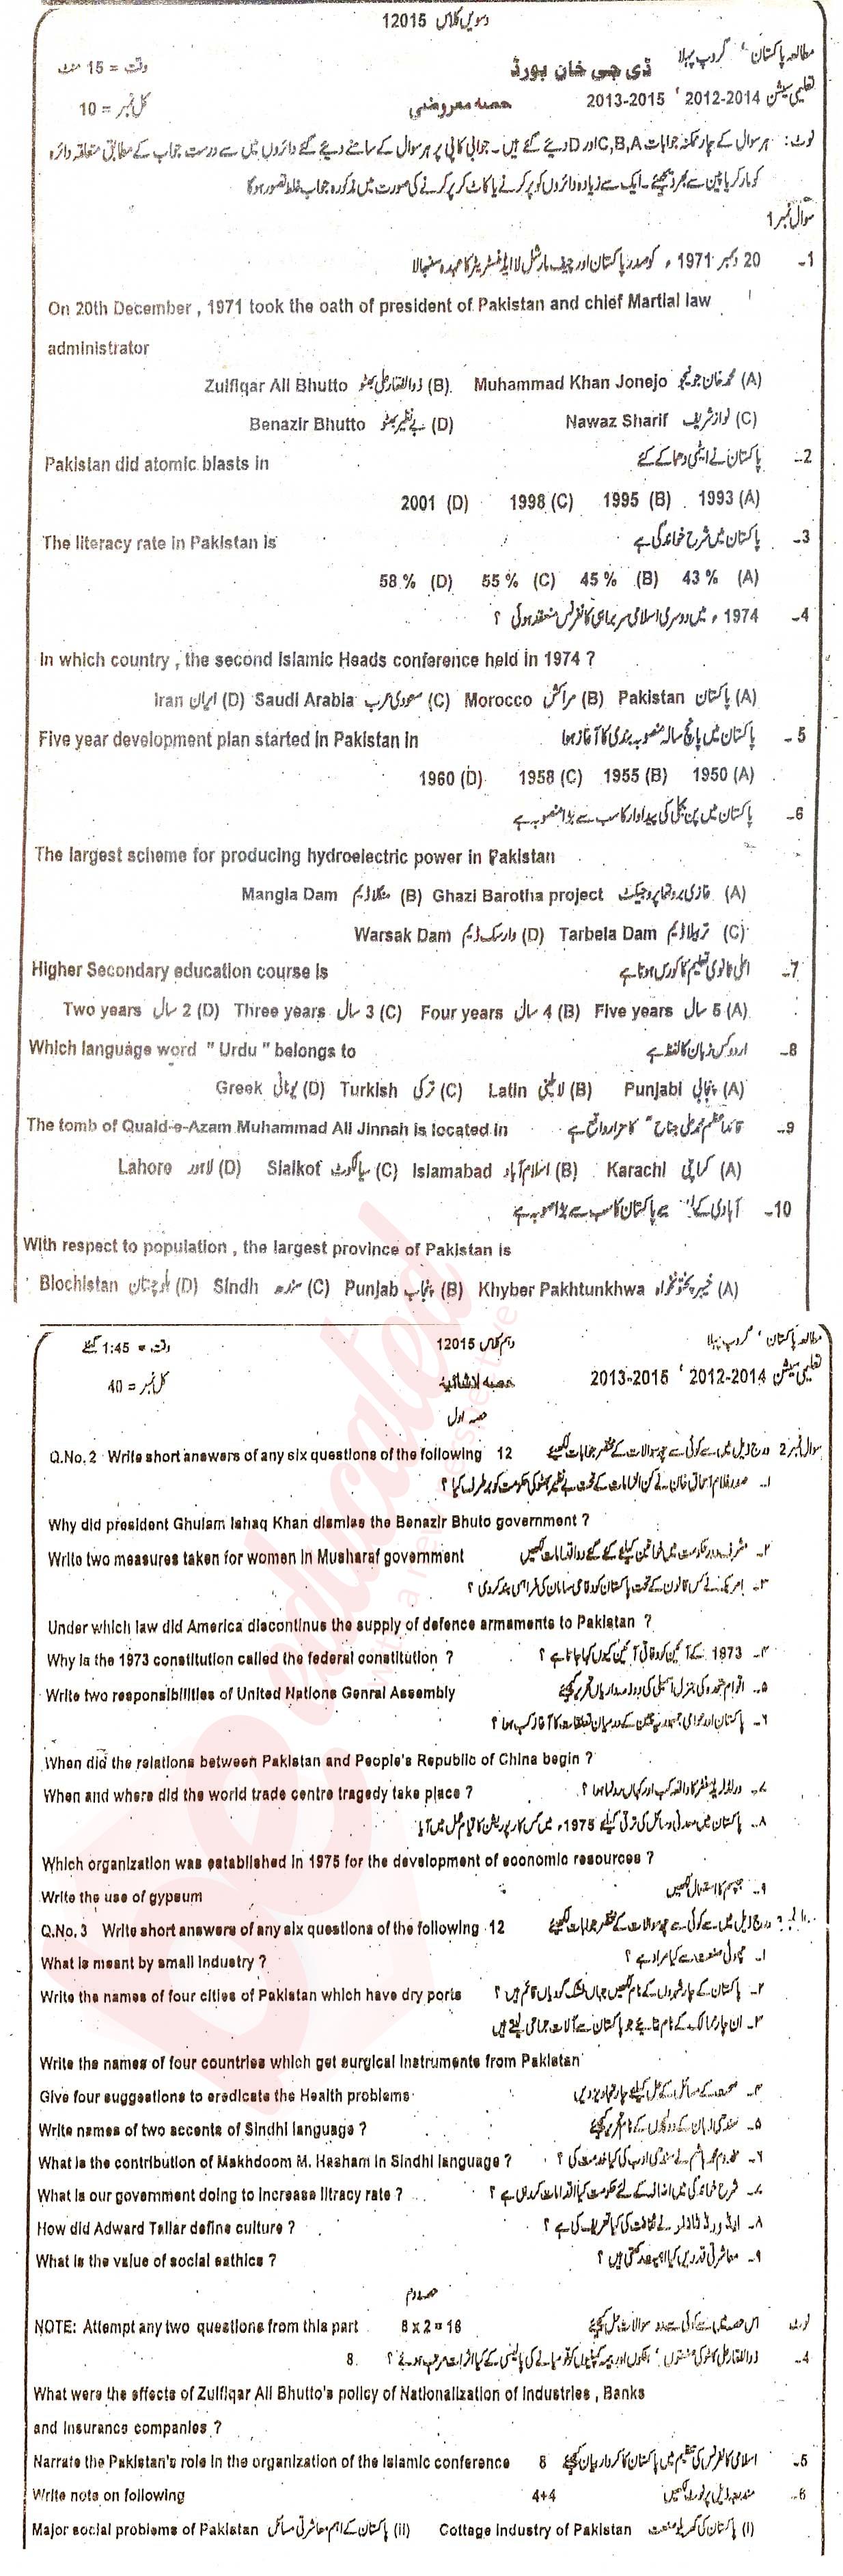 دسویں کلاس 12015
مطالعہ پاکستان ' گروپ پہلا
ڈی جی خان بورڈ
وقت = 15 منٹ
تعلیمی سیشن 2014-2012 ' 2015-2013
حصہ معروضی
کل نمبر = 10
نوٹ: ہر سوال کے چار ممکنہ جوابات C,B,A اور D دیے گئے ہیں۔ جوابی کاپی پر ہر سوال کے سامنے دیے گئے دائروں میں سے درست جواب کے مطابق متعلقہ دائرہ
کو مارکر یا پین سے بھر دیجئیے۔ ایک سے زیادہ دائروں کو پر کرنے یا کاٹ کر پر کرنے کی صورت میں مذکورہ جواب غلط تصور ہوگا
سوال نمبر 1
1۔ 20 دسمبر 1971ء کو صدر پاکستان اور چیف مارشل لا ایڈمنسٹریٹر کا عہدہ سنبھالا
On 20th December , 1971 took the oath of president of Pakistan and chief Martial law
administrator
(A) محمد خان جونیجو Muhammad Khan Jonejo (B) ذوالفقار علی بھٹو Zulfiqar Ali Bhutto
(C) نواز شریف Nawaz Sharif (D) بے نظیر بھٹو Benazir Bhutto
2۔ پاکستان نے ایٹمی دھماکے کئے Pakistan did atomic blasts in
(A) 1993 (B) 1995 (C) 1998 (D) 2001
3۔ پاکستان میں شرح خواندگی ہے The literacy rate in Pakistan is
(A) 43 % (B) 45 % (C) 55 % (D) 58 %
4۔ 1974ء میں دوسری اسلامی سربراہی کانفرنس منعقد ہوئی ؟
In which country , the second Islamic Heads conference held in 1974 ?
(A) پاکستان Pakistan (B) مراکش Morocco (C) سعودی عرب Saudi Arabia (D) ایران Iran
5۔ پاکستان میں پانچ سالہ منصوبہ بندی کا آغاز ہوا Five year development plan started in Pakistan in
(A) 1950 (B) 1955 (C) 1958 (D) 1960
6۔ پاکستان میں پن بجلی کی پیداوار کا سب سے بڑا منصوبہ ہے
The largest scheme for producing hydroelectric power in Pakistan
(A) غازی بروتھا پروجیکٹ Ghazi Barotha project (B) منگلا ڈیم Mangla Dam
(C) تربیلا ڈیم Tarbela Dam (D) وارسک ڈیم Warsak Dam
7۔ اعلیٰ ثانوی تعلیم کا کورس ہوتا ہے Higher Secondary education course is
(A) 5 سال Five years (B) 4 سال Four years (C) 3 سال Three years (D) 2 سال Two years
8۔ اردو کس زبان کا لفظ ہے Which language word " Urdu " belongs to
(A) پنجابی Punjabi (B) لاطینی Latin (C) ترکی Turkish (D) یونانی Greek
9۔ قائداعظم محمد علی جناح کا مزار واقع ہے The tomb of Quaid-e-Azam Muhammad Ali Jinnah is located in
(A) کراچی Karachi (B) اسلام آباد Islamabad (C) سیالکوٹ Sialkot (D) لاہور Lahore
10۔ آبادی کے سے پاکستان کا سب سے بڑا صوبہ ہے
With respect to population , the largest province of Pakistan is
(A) خیبر پختونخواہ Khyber Pakhtunkhwa (B) پنجاب Punjab (C) سندھ Sindh (D) بلوچستان Blochistan
مطالعہ پاکستان ' گروپ پہلا
دہم کلاس 12015
وقت = 1:45 گھنٹے
تعلیمی سیشن 2014-2012 ' 2015-2013
حصہ انشائیہ
کل نمبر = 40
حصہ اول
سوال نمبر 2 درج ذیل میں سے کوئی سے چھ سوالات کے مختصر جوابات لکھیئے Q.No. 2 Write short answers of any six questions of the following 12
۱۔ صدر غلام اسحاق خان نے کن الزامات کے تحت بے نظیر بھٹو کی حکومت کو برطرف کیا ؟
Why did president Ghulam Ishaq Khan dismiss the Benazir Bhuto government ?
۲۔ مشرف دور حکومت میں خواتین کیلئے کئے گئے دو اقدامات لکھیں Write two measures taken for women in Musharaf government
۳۔ امریکہ نے کس قانون کے تحت پاکستان کو دفاعی سامان کی فراہمی بند کر دی ؟
Under which law did America discontinue the supply of defence armaments to Pakistan ?
۴۔ 1973 کے آئین کو وفاقی آئین کیوں کہا جاتا ہے ؟ Why is the 1973 constitution called the federal constitution ?
۵۔ اقوام متحدہ کی جنرل اسمبلی کی دو ذمہ داریاں تحریر کیجئے Write two responsibilities of United Nations Genral Assembly
۶۔ پاکستان اور عوامی جمہوریہ چین کے درمیان تعلقات کا آغاز کب ہوا ؟
When did the relations between Pakistan and People's Republic of China begin ?
۷۔ ورلڈ ٹریڈ سنٹر کا واقعہ کب اور کہاں رونما ہوا ؟ When and where did the world trade centre tragedy take place ?
۸۔ پاکستان میں معدنی وسائل کی ترقی کیلئے 1975ء میں کس کارپوریشن کا قیام عمل میں آیا
Which organization was established in 1975 for the development of economic resources ?
۹۔ جپسم کا استعمال لکھیں Write the use of gypsum
درج ذیل میں سے کوئی سے چھ سوالات کے مختصر جوابات لکھیئے Q.No. 3 Write short answers of any six questions of the following 12
۱۔ چھوٹی صنعت سے کیا مراد ہے ؟ What is meant by small industry ?
۲۔ پاکستان کے چار شہروں کے نام لکھیں جہاں خشک گودیاں قائم ہیں ؟ Write the names of four cities of Pakistan which have dry ports
۳۔ ان چار ممالک کے نام بتائیے جو پاکستان سے آلات جراحی لیتے ہیں
Write the names of four countries which get surgical instruments from Pakistan
۴۔ صحت کے مسائل کے حل کیلئے چار تجاویز دیں Give four suggestions to eradicate the Health problems
۵۔ سندھی زبان کے دو لہجوں کے نام تحریر کیجئے Write names of two accents of Sindhi language ?
۶۔ مخدوم محمد ہاشم نے سندھی ادب کی کیا خدمت کی ؟ What is the contribution of Makhdoom M. Hasham in Sindhi language ?
۷۔ شرح خواندگی میں اضافہ کے لئے حکومت کیا اقدامات کر رہی ہے ؟ What is our government doing to increase litracy rate ?
۸۔ ایڈورڈ ٹائلر نے ثقافت کی کیا تعریف کی ہے ؟ How did Adward Tallar define culture ?
۹۔ معاشرتی قدریں کیا اہمیت رکھتی ہیں ؟ What is the value of social eathics ?
حصہ دوم
نوٹ اس حصہ میں سے کوئی سے دو سوالات حل کیجئے NOTE: Attempt any two questions from this part 8 x 2 = 16
4۔ ذوالفقار علی بھٹو کی صنعتوں ' بنکوں اور بیمہ کمپنیوں کو قومیانے کی پالیسی کے کیا اثرات مرتب ہوئے ؟ 8
What were the effects of Zulfiqar Ali Bhutto's policy of Nationalization of Industries , Banks
and insurance companies ?
5۔ اسلامی کانفرنس کی تنظیم میں پاکستان کا کردار بیان کیجئے 8 Narrate the Pakistan's role in the organization of the Islamic conference
6۔ مندرجہ ذیل پر نوٹ لکھیں 4+4 Write note on following
(i) پاکستان کی گھریلو صنعت Cottage industry of Pakistan (ii) پاکستان کے اہم معاشرتی مسائل Major social problems of Pakistan
educated